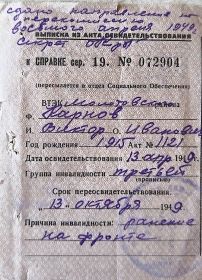 сдано направление на
военного апреля 1949,
ВЫПИСКА ИЗ АКТА ОСВИДЕТЕЛЬСТВОВАНИЯ
К СПРАВКЕ сер. 19. № 072904
(пересылается в отдел Социального Обеспечения)
ВТЭК
Карнов
Виктор О. Иванович
Год рождения 1915 Акт № 1121
Дата освидетельствования 13 апр 1949
Группа инвалидности третьей
(прописью)
Срок переосвидетельствования
13 октября 1949
Причина инвалидности: ранение
на фронте